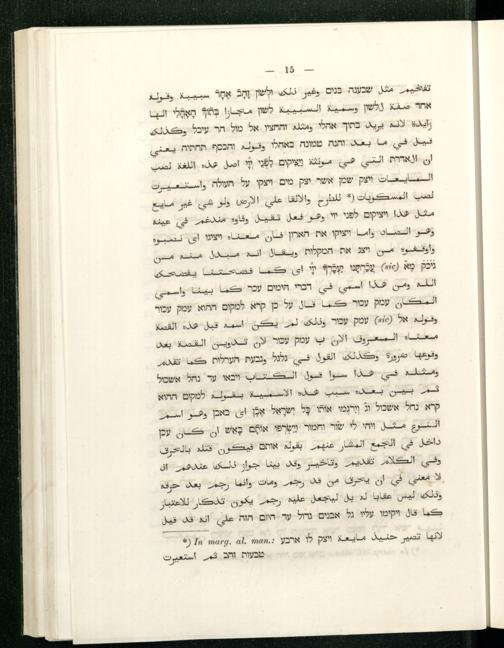 — 15 —
تفخيم مثل שבענה בנים وغير ذلك ולשון זהב אחד سبيبة وقوله
אחד صفة للשון وسمية السبيبة לשון مجازا בתוך האהלי الها
زايدة لانه يريد בתוך אהלי ومثله והחציו אל מול הר עיבל وكذلك
قيل فى ما بعد והנה טמונה באהלו وقوله והכסף תחתיה يعنى
ان האדרת التى هى مونثة ויציקום לפני יי اصل هذه اللغة لصب
المايعات ויצק שמן אשר יצק מים ויצקו على העולה واستعيرت
لصب المسكوبات (* للطرح والالقا على الارض ولو شى غير مايع
مثل هذا ויציקום לפני יוי وهو فعل ثقيل وفاوه مندغم فى عينه
وهو الصاد واما ויציקו את הארון فان معناه ויציגו اى نصبوه
واوقفوه من ויצג את המקלות ويقال انه مبدل منه من
(sic) עכרתנו יעכרך יי اى كما فضحتنا يفضحك
الله ومن هذا اسمى فى דברי הימים עכר كما بينا واسمى
المكان עמק עכור كما قال על כן קרא למקום ההוא עמק עכור
وقوله אל (sic) עמק עכור وذلك لم يكن اسمه قبل هذه القصة
معناه المعروف الان ب עמק עכור لان تدوين القصة بعد
وقوعها ضرورة وكذلك القول فى גלגל وגבעת הערלות كما تقدم
ومثله فى هذا سوا قول الكتاب ויבאו עד נחל אשכול
ثم بين بعده سبب هذه الاسمية بقوله למקום ההוא
קרא נחל אשכול וג׳ וירגמו אותו כל ישראל אבן اى באבן وهو اسم
النوع مثل ויהי לי שור וחמור וישרפו אותם באש ان كان עכן
داخل فى الجمع المشار عنهم بقوله אותם فيكون قتله بالحرق
وفى الكلام تقديم وتاخير وقد بينا جواز ذلك عندهم اذ
لا معنى فى ان يحرق من قد رجم ومات وانما رجم بعد حرقه
وذلك ليس عقابا له بل ليجعل عليه رجم يكون تذكار للاعتبار
كما قال ויקימו עליו גל אבנים גדול עד היום הזה على انه قد قيل
*) In marg. al. man.: لانها تصير حنيذ مايعة ויצק לו ארבע
טבעות זהב ثم استعيرت